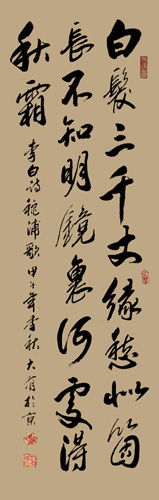 白髮三千丈緣愁似箇
長不知明鏡裏何處得
秋霜
李白詩秋浦歌甲午年季秋大有於京